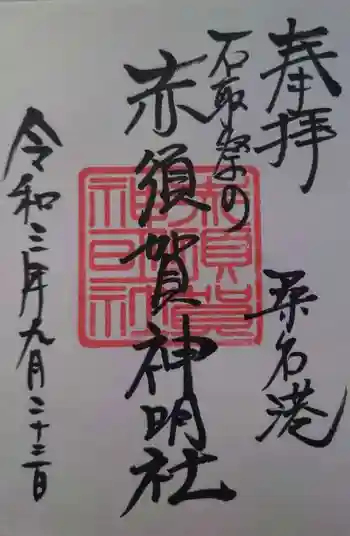 奉拝
桑名港
石取祭の
赤須賀神明社
令和三年九月二十三日
赤須賀
神明社